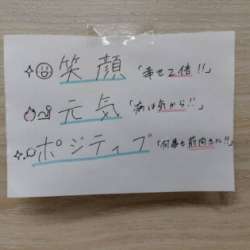 笑顔「幸せ2倍!!」
元気「病は気から!!」
ポジティブ「何事も前向きに!!」